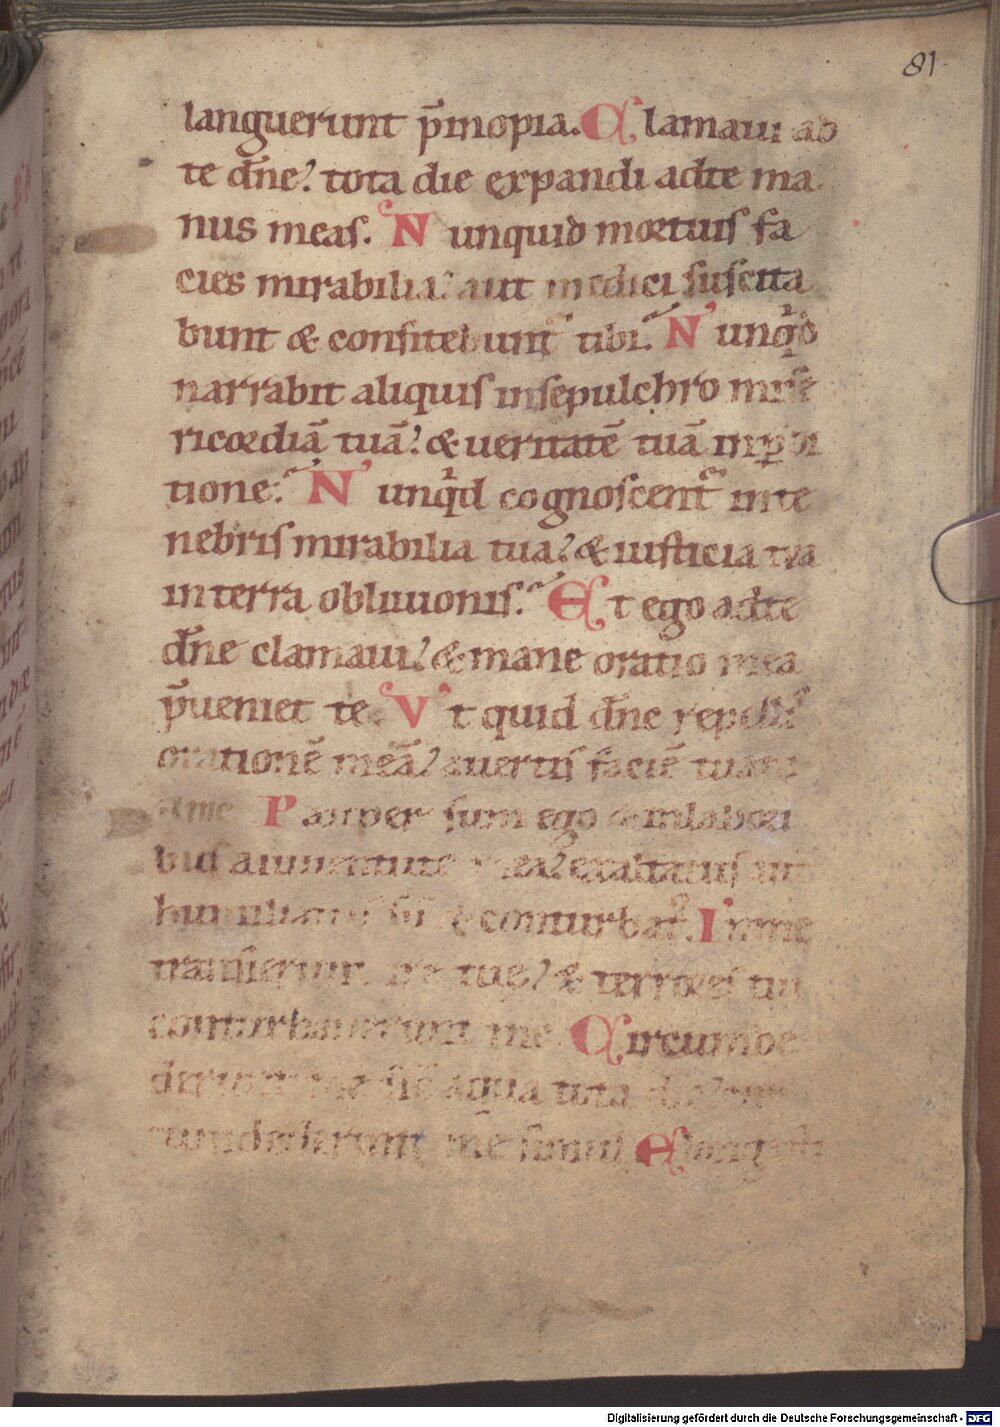 81
languerunt p̄inopia. Clamaui ad
te dn̄e? tota die expandi adte ma
nus meas. Nunquid mortuis fa
cies mirabilia? aut medici suscita
bunt & confitebunt᷑ tibi. Nunqͥd
narrabit aliquis insepulchro mise
ricordiā tuā? & ueritatē tuā inꝑdi
tione. Nunqͥd cognoscent᷑ inte
nebris mirabilia tua? & iusticia tua
interra obliuionis. Et ego adte
dn̄e clamaui? & mane oratio mea
p̄ueniet te. Vt quid dn̄e repellis
orationē meā? auertis faciē tuam
ame Pauper sum ego & inlabori
bus aiuuentute mea? exaltatus aut̄
humiliatus sū & conturbat᷒. Inme
transierunt ire tuę? & terrores tui
conturbauerunt me Circumde
derunt me sic̄ aqua tota die
cumdederunt me simul Elongasti
Digitalisierung gefördert durch die Deutsche Forschungsgemeinschaft - DFG